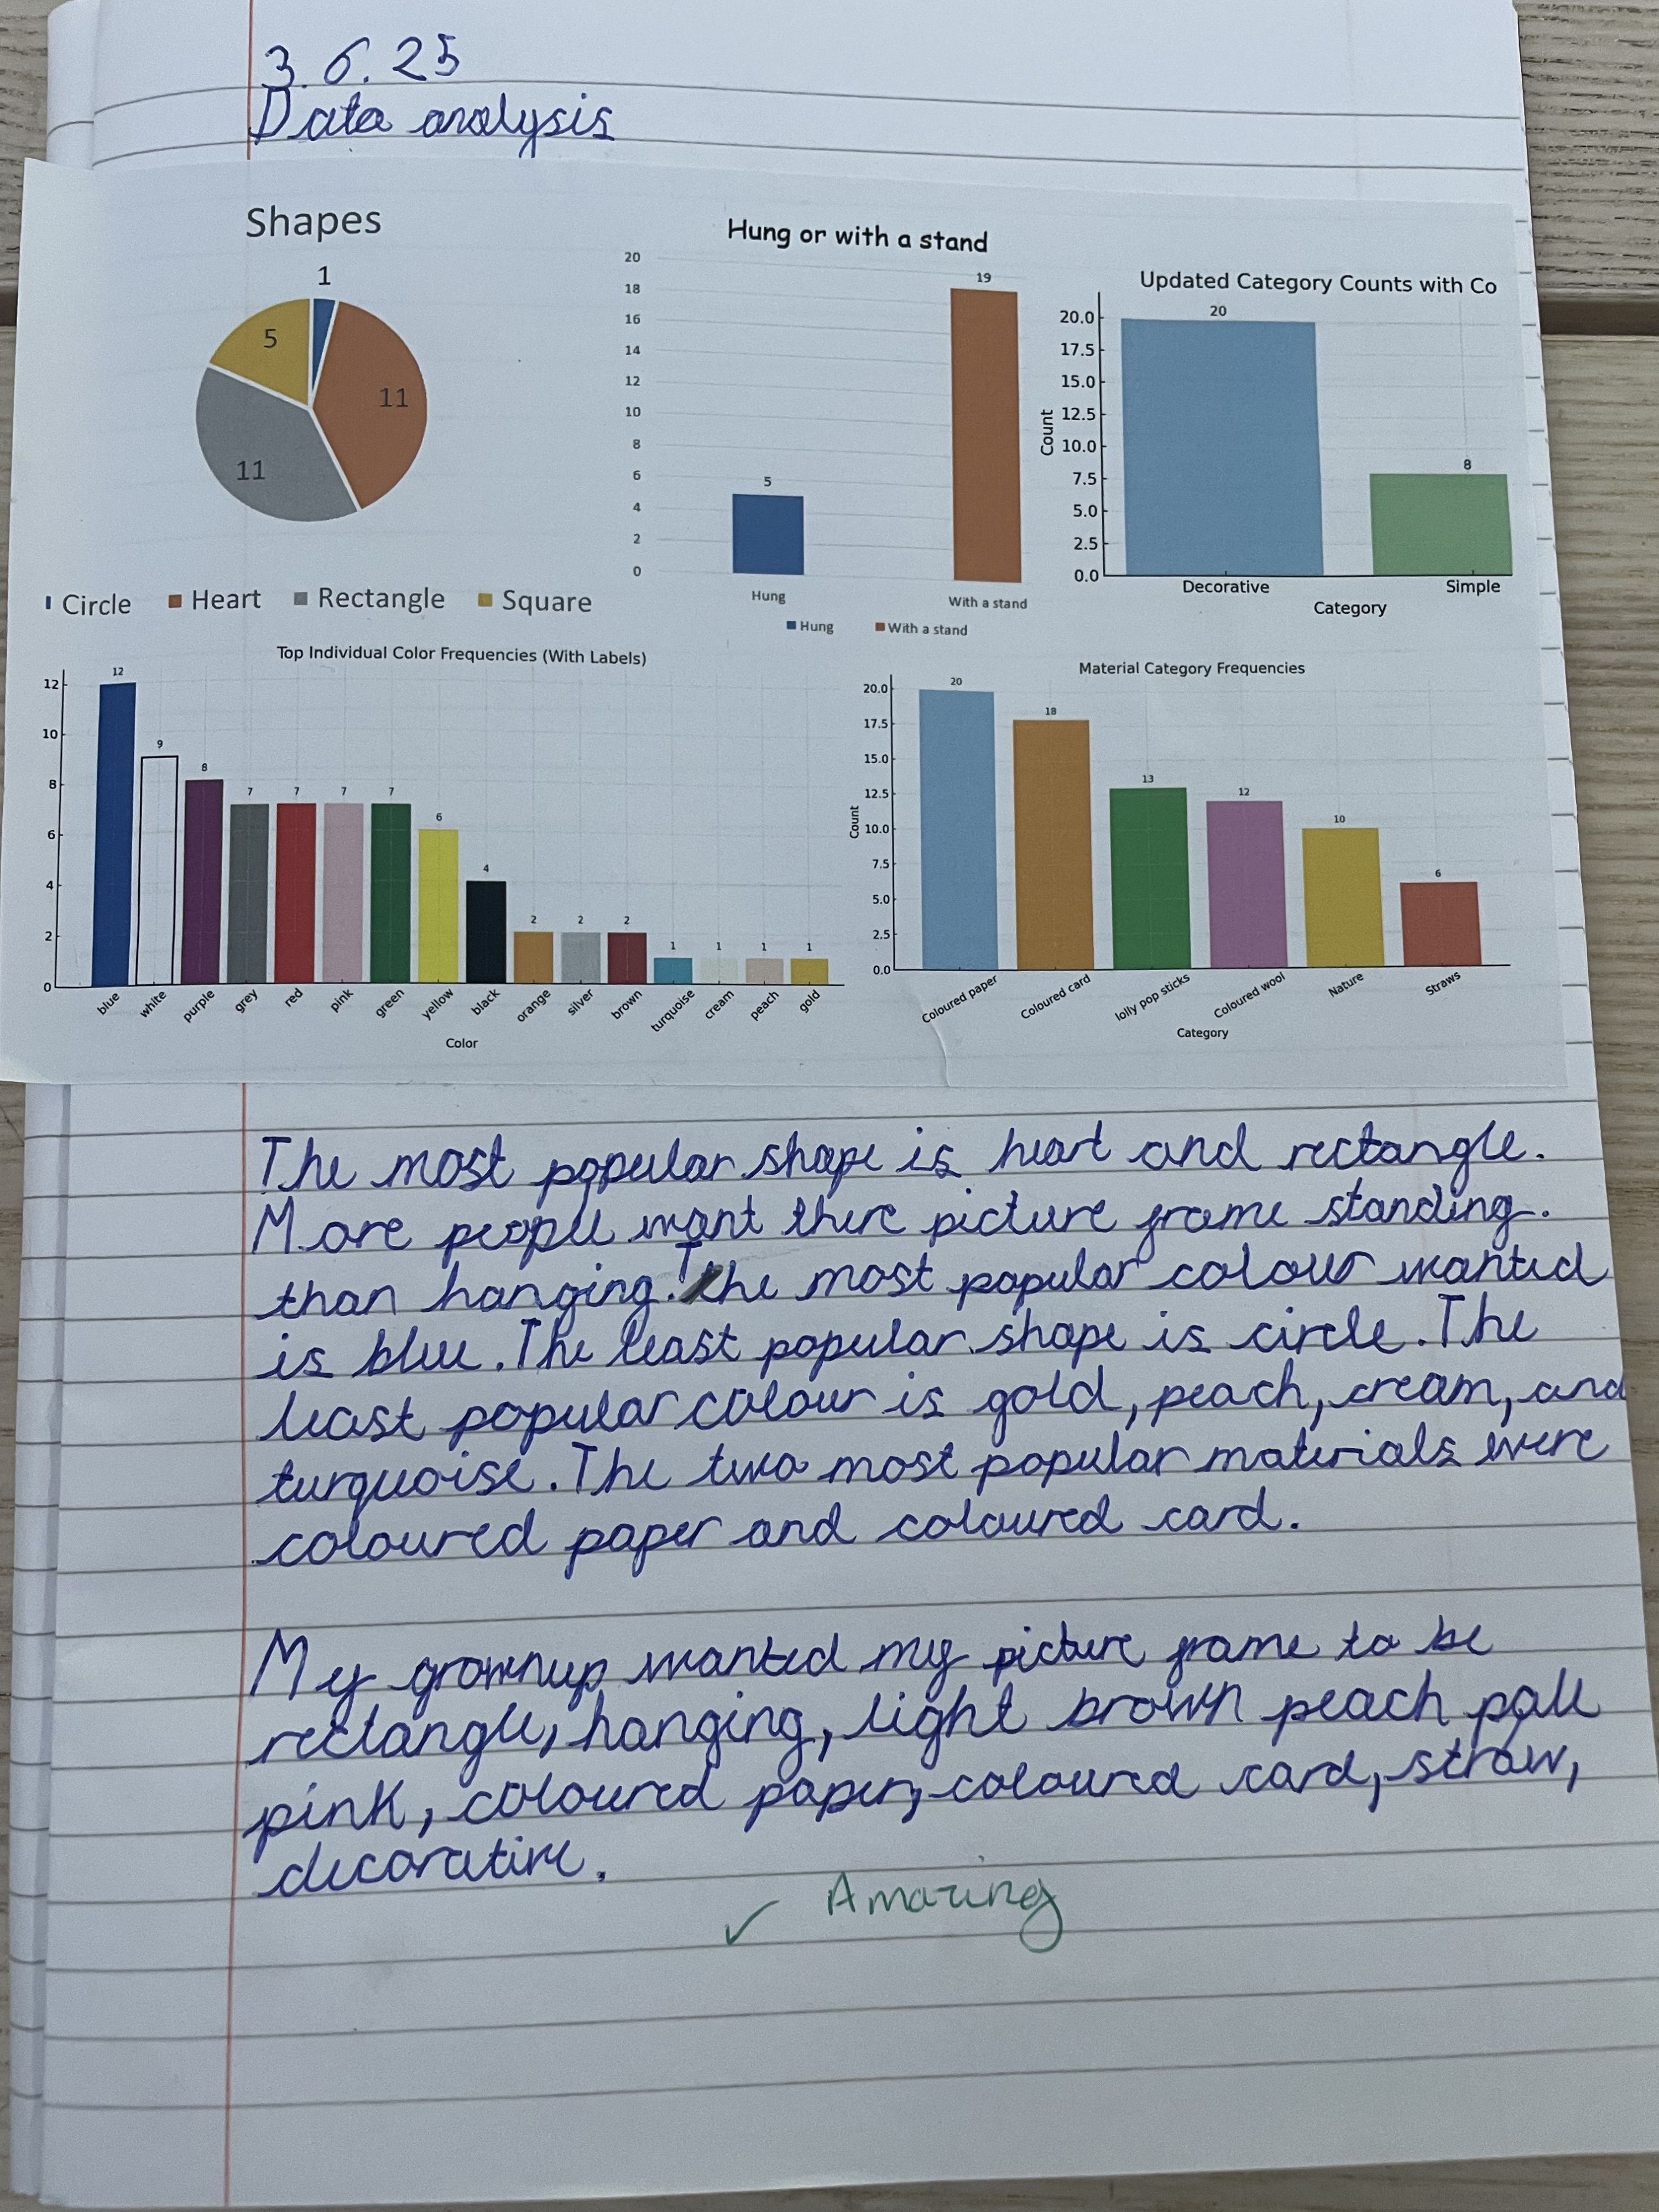 3.6.25
Data analysis
Shapes
1
5
11
11
Circle Heart Rectangle Square
Hung or with a stand
20
18
16
14
12
10
8
6
4
2
0
5
19
Hung With a stand
Hung With a stand
Updated Category Counts with Co
Count
20.0
17.5
15.0
12.5
10.0
7.5
5.0
2.5
0.0
20
8
Decorative Simple
Category
Top Individual Color Frequencies (With Labels)
12
10
8
6
4
2
0
12 9 8 7 7 7 7 6 4 2 2 2 1 1 1 1
blue white purple grey red pink green yellow black orange silver brown turquoise cream peach gold
Color
Material Category Frequencies
Count
20.0
17.5
15.0
12.5
10.0
7.5
5.0
2.5
0.0
20 18 13 12 10 6
Coloured paper Coloured card lolly pop sticks Coloured wool Nature Straws
Category
The most popular shape is heart and rectangle.
More people want there picture frame standing.
than hanging. The most popular colour wanted
is blue. The least popular shape is circle. The
least popular colour is gold, peach, cream, and
turquoise. The two most popular materials were
coloured paper and coloured card.
My grownup wanted my picture frame to be
rectangle, hanging, light brown peach pale
pink, coloured paper, coloured card, straw,
decorative.
✓ Amazing